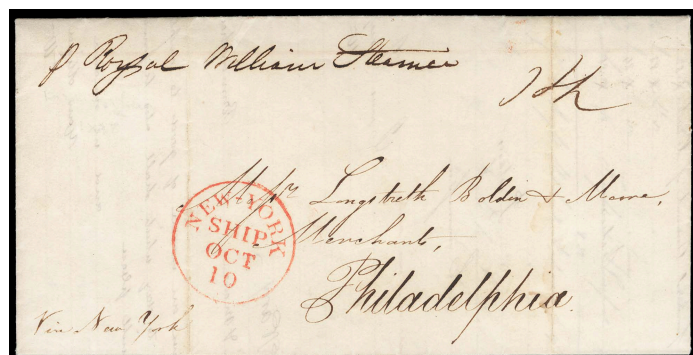 p Royal William Steamer
Messrs Longstreth Boldin & Moore,
Merchants,
Philadelphia
NEW-YORK
SHIP
OCT
10
Via New York